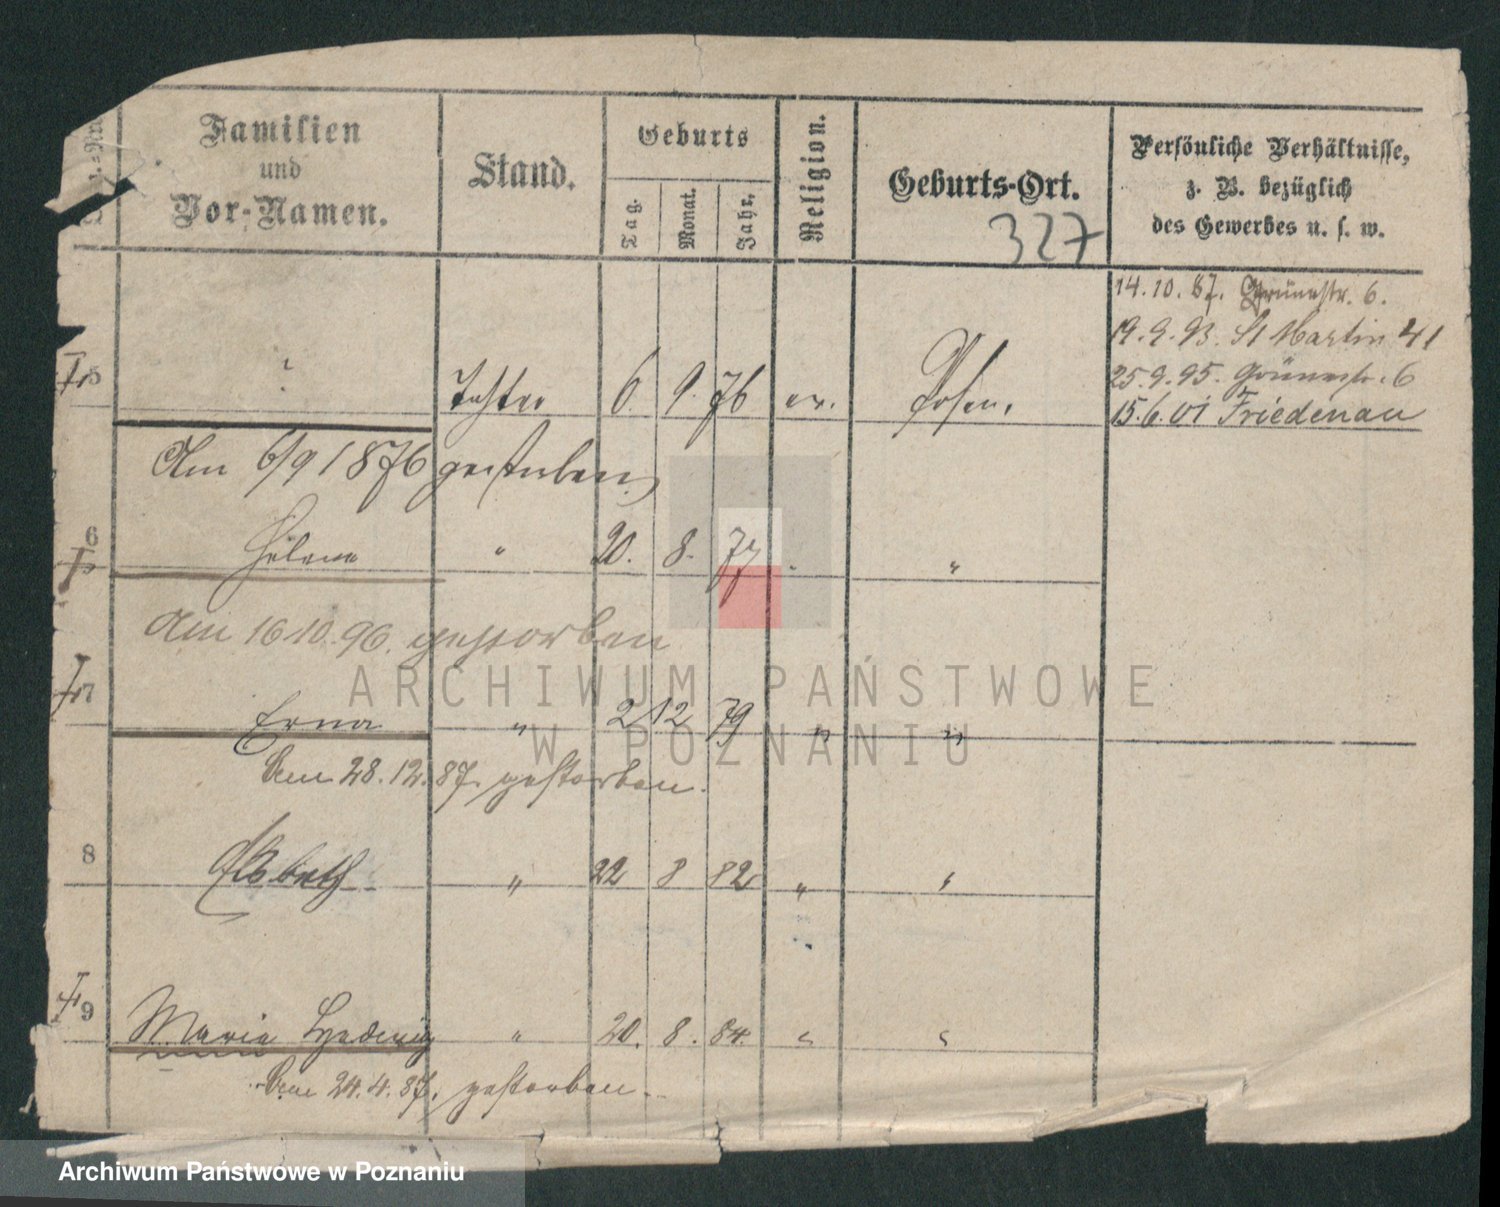 Familien
und
Vor-Namen.
Stand.
Geburts
Tag.
Monat.
Jahr.
Religion.
Geburts-Ort.
327
Persönliche Verhältnisse,
z. B. bezüglich
des Gewerbes u. s. w.
14.10.87. Grünestr. 6.
19.9.93. St Martin 41
25.9.95. Grünestr. 6
15.6.01 Friedenau
5 ? Tochter 6. 9. 76 ev. Posen.
Am 6/9 1876 gestorben
6 Helene " 20. 8. 77 "
Am 16 10. 96. gestorben
7 Erna " 2 12 79 " "
Am 28.12.87. gestorben.
8 Elsbeth " 22 8 82 " "
9 Maria Hedwig " 20. 8. 84. " "
Am 24.4.87. gestorben.
ARCHIWUM PAŃSTWOWE
W POZNANIU
Archiwum Państwowe w Poznaniu